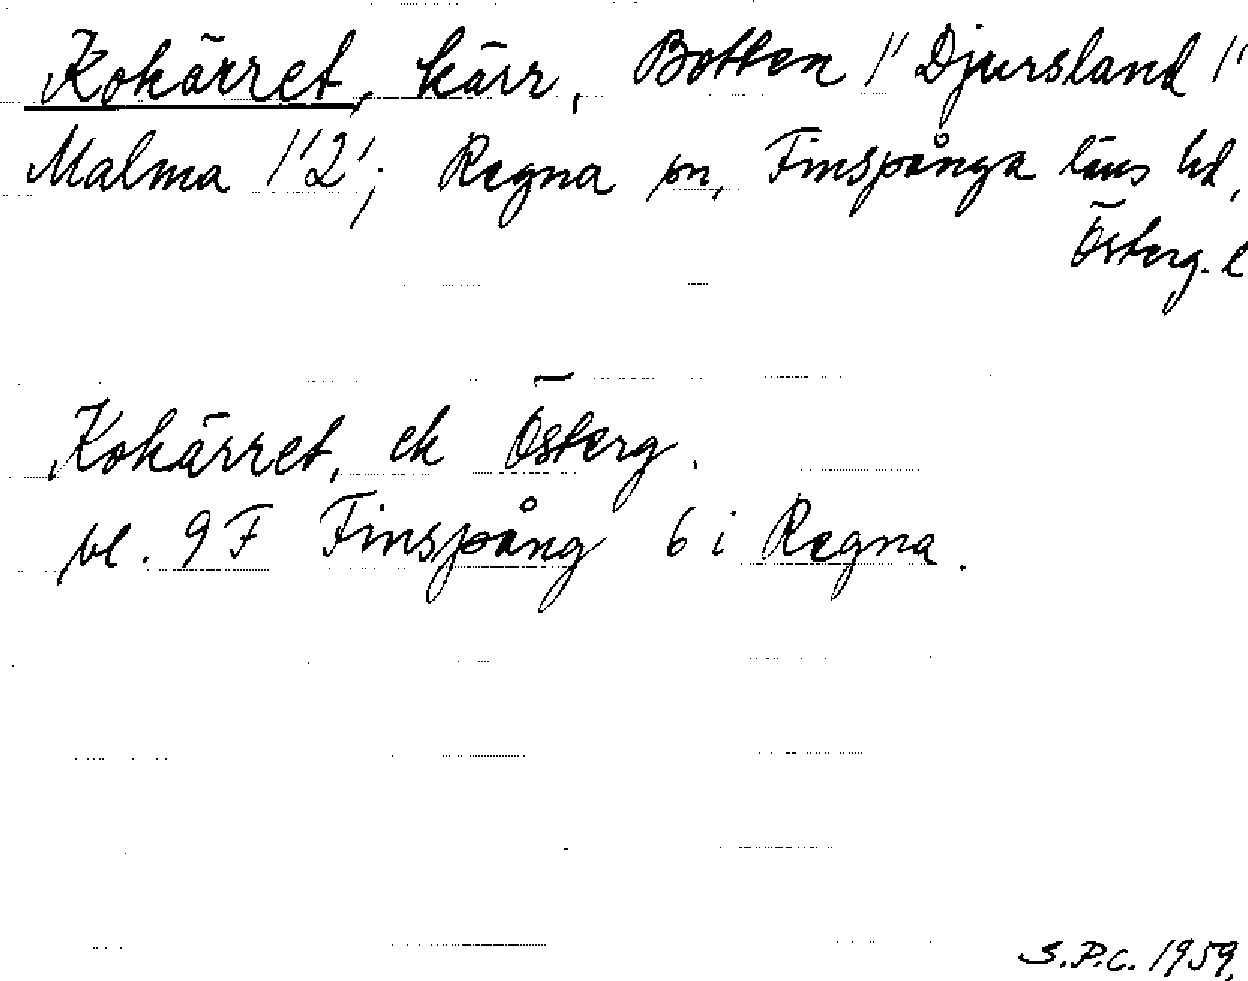 Kokärret, kärr, Botten 1' Djursland 1'
Malma 1'2'; Regna sn, Finspånga läns hd,
Österg. l
Kokärret, ek Österg.
bl. 9F Finspång 6 i Regna.
S.P.C. 1959.